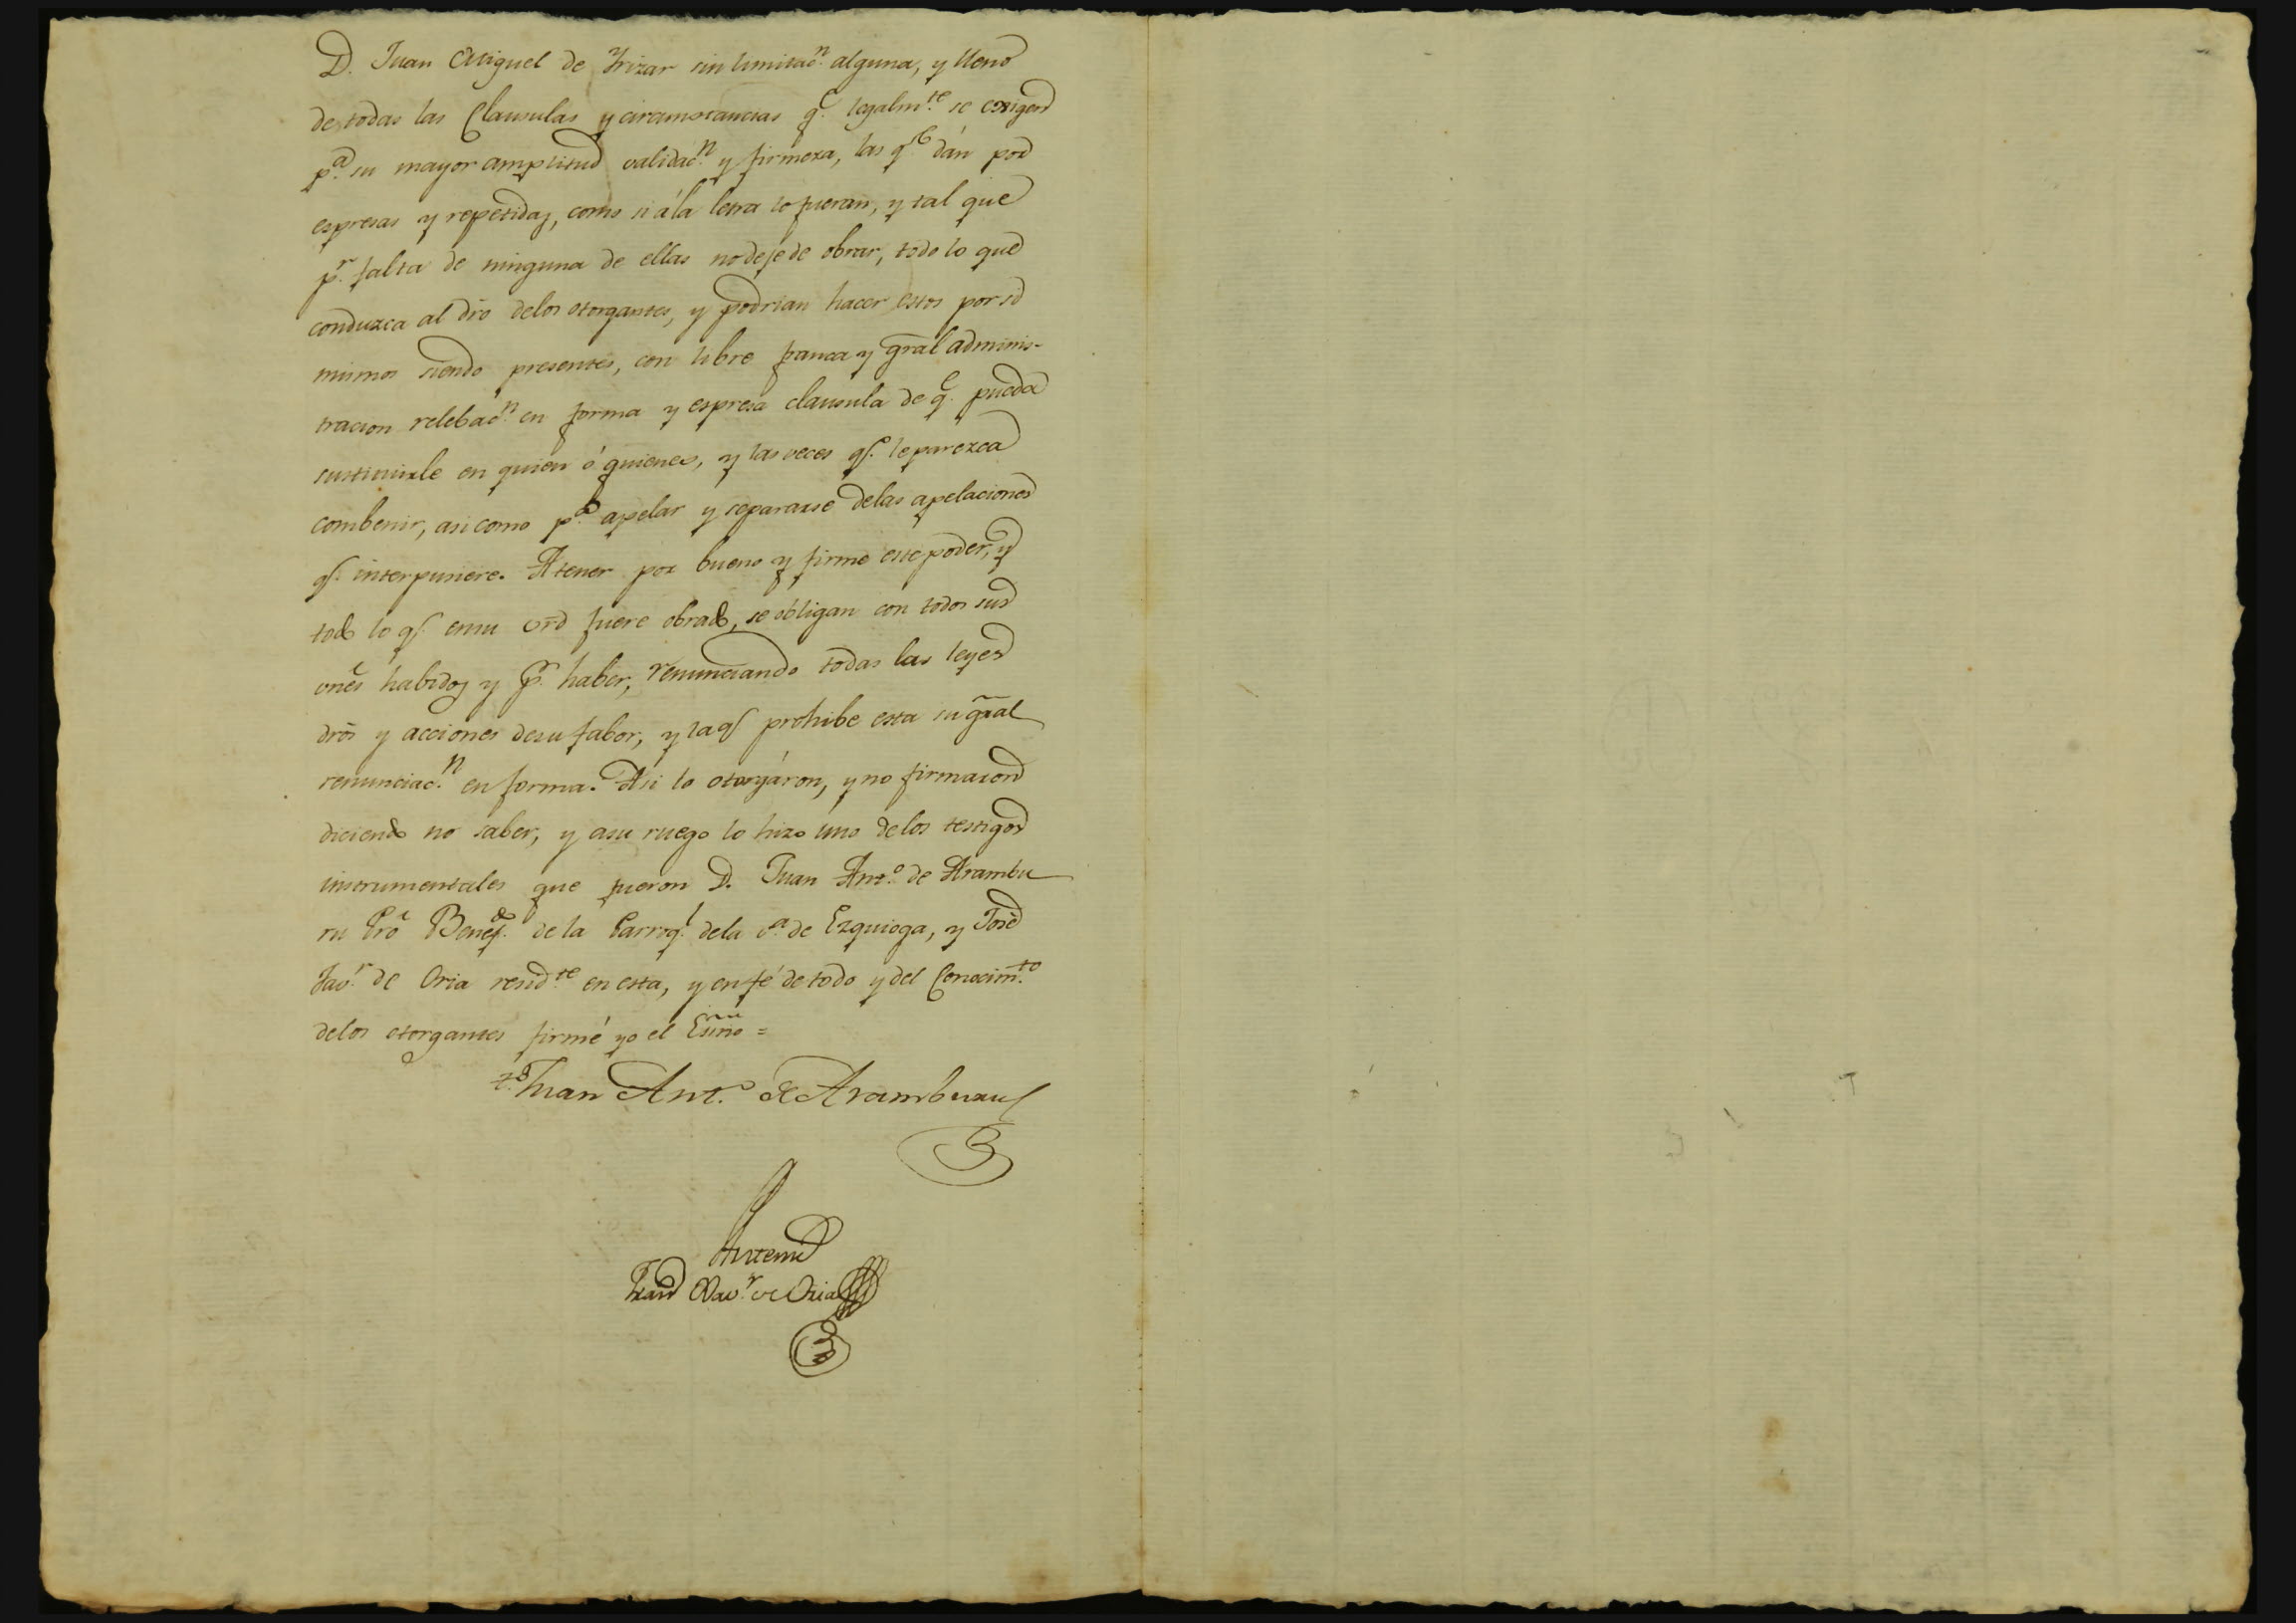 D. Juan Miguel de Yrizar sin limitac.n alguna, y lleno
de todas las Clausulas y circunstancias q.e legalm.te se exigen
p.a su mayor amplitud validac.n y firmeza, las q.e dán por
espresas y repetidas, como si á la letra lo fueran, y tal que
p.r falta de ninguna de ellas no deje de obrar, todo lo que
conduzca al dro de los otorgantes, y podrian hacer estos por sí
mismos siendo presentes, con libre franca y gral adminis-
tracion relebac.n en forma y espresa clausula de q.e pueda
sustituirle en quien ó quienes, y las veces q.e le parezca
combenir, asi como p.a apelar y separarse de las apelaciones
q.e interpusiere. A tener por bueno y firme este poder, y
todo lo q.e en su vrd fuere obrado, se obligan con todos sus
vnes habidos y p.r haber, renunciando todas las leyes
dros y acciones de su fabor, y la q.e prohibe esta su gral
renunciac.n en forma. Asi lo otorgáron, y no firmaron
diciendo no saber, y a su ruego lo hizo uno de los testigos
instrumentales que fueron D. Juan Ant.o de Arambu
ru Pro Benef.do de la Parroq.l de la v.a de Ezquioga, y José
Jav.r de Oria resid.te en esta, y en fé de todo y del Conocim.to
de los otorgantes firmé yo el Esnno =
t.o Juan Ant.o de Aramburu
Antemi
Fran.co Xav.r de Oria